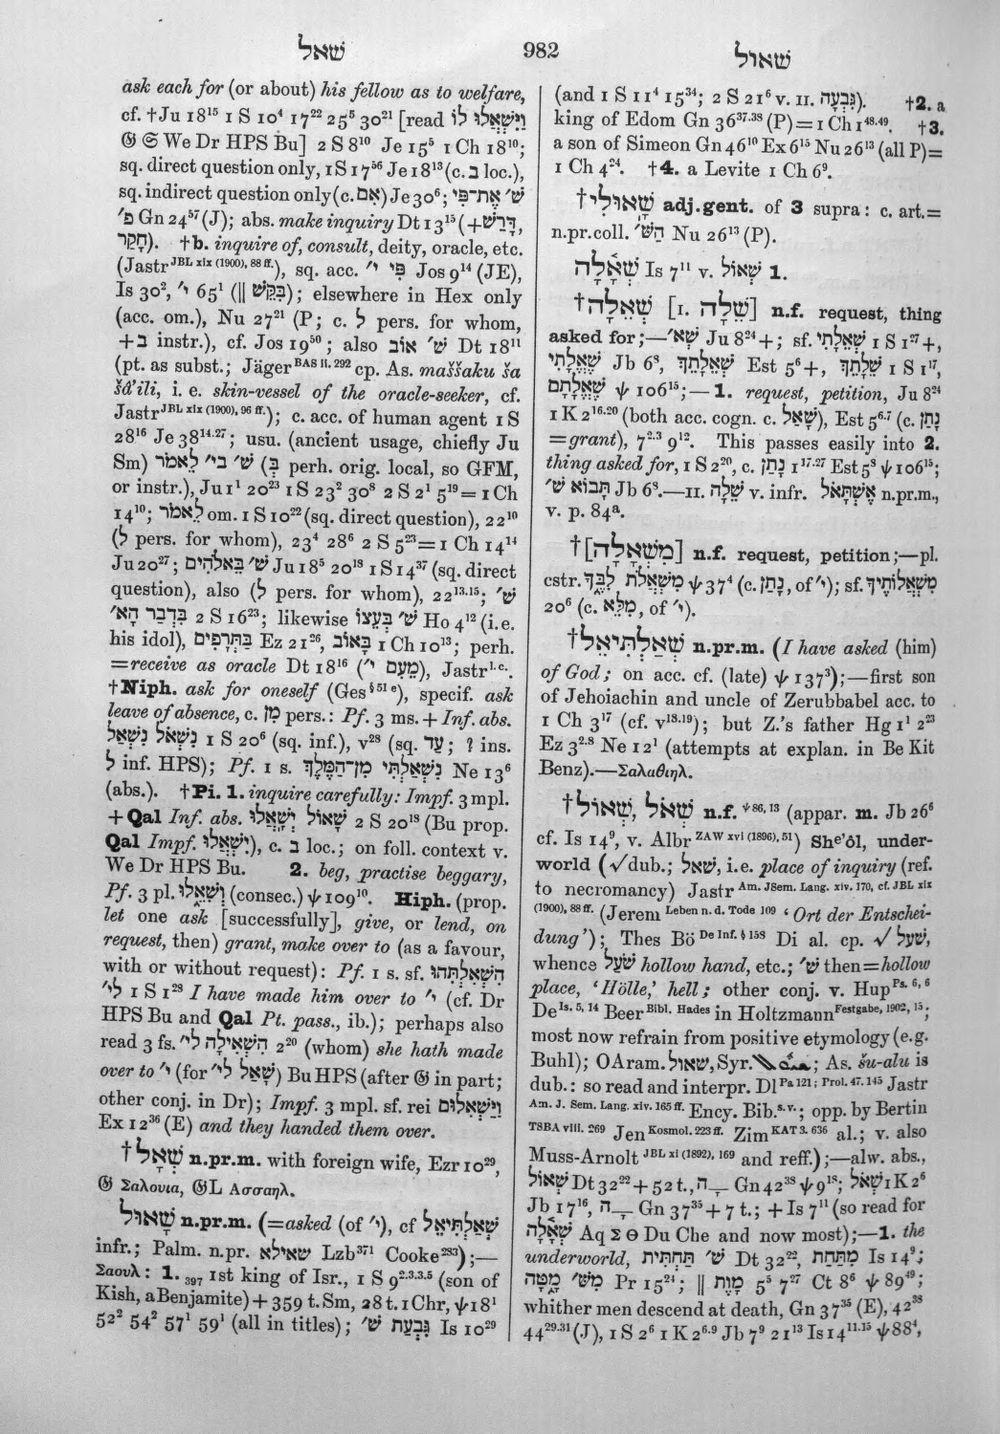 שאל
982
שאול
ask each for (or about) his fellow as to welfare,
cf. †Ju 18¹⁵ 1 S 10⁴ 17²² 25⁵ 30²¹ [read וַיִּשְׁאֲלוּ לוֹ
𝔊 𝔖 We Dr HPS Bu] 2 S 8¹⁰ Je 15⁵ 1 Ch 18¹⁰;
sq. direct question only, 1 S 17⁵⁶ Je 18¹³ (c. בְּ loc.),
sq. indirect question only (c. אִם) Je 30⁶; שׁ׳ אֶת־פִּי
פ׳ Gn 24⁵⁷ (J); abs. make inquiry Dt 13¹⁵ (+דָּרַשׁ,
חָקַר). †b. inquire of, consult, deity, oracle, etc.
(Jastr JBL xix (1900), 88 ff.), sq. acc. פִּי י׳ Jos 9¹⁴ (JE),
Is 30², י׳ 65¹ (‖ בִּקֵּשׁ); elsewhere in Hex only
(acc. om.), Nu 27²¹ (P; c. לְ pers. for whom,
+בְּ instr.), cf. Jos 19⁵⁰; also שׁ׳ אוֹב Dt 18¹¹
(pt. as subst.; Jäger BAS ii. 292 cp. As. maššaku ša
šâ’ili, i. e. skin-vessel of the oracle-seeker, cf.
Jastr JBL xix (1900), 96 ff.); c. acc. of human agent 1 S
28¹⁶ Je 38¹⁴·²⁷; usu. (ancient usage, chiefly Ju
Sm) שׁ׳ בי׳׳ לֵאמֹר (בְּ perh. orig. local, so GFM,
or instr.), Ju 1¹ 20²³ 1 S 23² 30⁸ 2 S 2¹ 5¹⁹ = 1 Ch
14¹⁰; לֵאמֹר om. 1 S 10²² (sq. direct question), 22¹⁰
(לְ pers. for whom), 23⁴ 28⁶ 2 S 5²³ = 1 Ch 14¹⁴
Ju 20²⁷; שׁ׳ בֵּאלֹהִים Ju 18⁵ 20¹⁸ 1 S 14³⁷ (sq. direct
question), also (לְ pers. for whom), 22¹³·¹⁵; שׁ׳
בִּדְבַר הָא׳ 2 S 16²³; likewise שׁ׳ בְּעֵצוֹ Ho 4¹² (i.e.
his idol), בַּתְּרָפִים Ez 21²⁶, בָּאוֹב 1 Ch 10¹³; perh.
=receive as oracle Dt 18¹⁶ (מֵעִם י׳), Jastr l.c.
†Niph. ask for oneself (Ges § 51 e), specif. ask
leave of absence, c. מִן pers.: Pf. 3 ms. + Inf. abs.
נִשְׁאֹל נִשְׁאַל 1 S 20⁶ (sq. inf.), v²⁸ (sq. עַד; ? ins.
לְ inf. HPS); Pf. 1 s. נִשְׁאַלְתִּי מִן־הַמֶּלֶךְ Ne 13⁶
(abs.). †Pi. 1. inquire carefully: Impf. 3 mpl.
+Qal Inf. abs. שָׁאוֹל יְשָׁאֲלוּ 2 S 20¹⁸ (Bu prop.
Qal Impf. יִשְׁאֲלוּ), c. בְּ loc.; on foll. context v.
We Dr HPS Bu. 2. beg, practise beggary,
Pf. 3 pl. וְשִׁאֵלוּ (consec.) ψ 109¹⁰. Hiph. (prop.
let one ask [successfully], give, or lend, on
request, then) grant, make over to (as a favour,
with or without request): Pf. 1 s. sf. הִשְׁאִלְתִּהוּ
לי׳׳ 1 S 1²⁸ I have made him over to י׳ (cf. Dr
HPS Bu and Qal Pt. pass., ib.); perhaps also
read 3 fs. הִשְׁאִילָה לי׳׳ 2²⁰ (whom) she hath made
over to י׳ (for שָׁאַל לי׳׳) Bu HPS (after 𝔊 in part;
other conj. in Dr); Impf. 3 mpl. sf. rei וַיַּשְׁאִלוּם
Ex 12³⁶ (E) and they handed them over.
†שְׁאָל n.pr.m. with foreign wife, Ezr 10²⁹,
𝔊 Σαλουια, 𝔊L Ασσαηλ.
שָׁאוּל n.pr.m. (=asked (of י׳), cf שְׁאַלְתִּיאֵל
infr.; Palm. n.pr. שאילא Lzb³⁷¹ Cooke²⁸³);—
Σαουλ: 1.₃₉₇ 1st king of Isr., 1 S 9²·³·³·⁵ (son of
Kish, a Benjamite) + 359 t. Sm, 28 t. 1 Chr, ψ 18¹
52² 54² 57¹ 59¹ (all in titles); גִּבְעַת שׁ׳ Is 10²⁹
(and 1 S 11⁴ 15³⁴; 2 S 21⁶ v. II. גִּבְעָה). †2. a
king of Edom Gn 36³⁷·³⁸ (P) = 1 Ch 1⁴⁸·⁴⁹. †3.
a son of Simeon Gn 46¹⁰ Ex 6¹⁵ Nu 26¹³ (all P)=
1 Ch 4²⁴. †4. a Levite 1 Ch 6⁹.
†שָׁאוּלִי adj.gent. of 3 supra: c. art.=
n.pr.coll. הַשּׁ׳ Nu 26¹³ (P).
שְׁאָלָה Is 7¹¹ v. שְׁאוֹל 1.
†שְׁאֵלָה [I. שֵׁלָה] n.f. request, thing
asked for;—שְׁא׳ Ju 8²⁴+; sf. שְׁאֵלָתִי 1 S 1²⁷+,
שֶׁאֱלָתִי Jb 6⁸, שְׁאֵלָתֵךְ Est 5⁶+, שֵׁלָתֵךְ 1 S 1¹⁷,
שֶׁאֱלָתָם ψ 106¹⁵;—1. request, petition, Ju 8²⁴
1 K 2¹⁶·²⁰ (both acc. cogn. c. שָׁאַל), Est 5⁶·⁷ (c. נָתַן
=grant), 7²·³ 9¹². This passes easily into 2.
thing asked for, 1 S 2²⁰, c. נָתַן 1¹⁷·²⁷ Est 5⁸ ψ 106¹⁵;
תָּבוֹא שׁ׳ Jb 6⁸.—II. שֵׁלָה v. infr. אֶשְׁתָּאֹל n.pr.m.,
v. p. 84ᵃ.
†[מִשְׁאָלָה] n.f. request, petition;—pl.
cstr. מִשְׁאֲלֹת לִבֶּךָ ψ 37⁴ (c. נָתַן, of י׳); sf. מִשְׁאֲלוֹתֶיךָ
20⁶ (c. מִלֵּא, of י׳).
†שְׁאַלְתִּיאֵל n.pr.m. (I have asked (him)
of God; on acc. cf. (late) ψ 137³);—first son
of Jehoiachin and uncle of Zerubbabel acc. to
1 Ch 3¹⁷ (cf. v¹⁸·¹⁹); but Z.’s father Hg 1¹ 2²³
Ez 3²·⁸ Ne 12¹ (attempts at explan. in Be Kit
Benz).—Σαλαθιηλ.
†שְׁאֹל, שְׁאוֹל n.f. ψ 86, 13 (appar. m. Jb 26⁶
cf. Is 14⁹, v. Albr ZAW xvi (1896), 51) Sheʼôl, under-
world (√ dub.; שׁאל, i.e. place of inquiry (ref.
to necromancy) Jastr Am. JSem. Lang. xiv. 170, cf. JBL xix
(1900), 88 ff. (Jerem Leben n. d. Tode 109 ‘Ort der Entschei-
dung’); Thes Bö De Inf. § 158 Di al. cp. √ שׁעל,
whence שֹׁעַל hollow hand, etc.; שׁ׳ then=hollow
place, ‘Hölle,’ hell; other conj. v. Hup Ps. 6, 6
De Is. 5, 14 Beer Bibl. Hades in Holtzmann Festgabe, 1902, 15;
most now refrain from positive etymology (e.g.
Buhl); OAram. שאול, Syr. ; As. šu-alu is
dub.: so read and interpr. Dl Pa 121; Prol. 47. 145 Jastr
Am. J. Sem. Lang. xiv. 165 ff. Ency. Bib. s.v.; opp. by Bertin
TSBA viii. 269 Jen Kosmol. 223 ff. Zim KAT 3. 636 al.; v. also
Muss-Arnolt JBL xi (1892), 169 and reff.);—alw. abs.,
שְׁאוֹל Dt 32²²+52 t., ־ָה Gn 42³⁸ ψ 9¹⁸; שְׁאֹל 1 K 2⁶
Jb 17¹⁶, ־ָה Gn 37³⁵+7 t.; + Is 7¹¹ (so read for
שְׁאָלָה Aq Σ Θ Du Che and now most);—1. the
underworld, שׁ׳ תַּחְתִּית Dt 32²², מִתַּחַת Is 14⁹;
מִשּׁ׳ מָטָּה Pr 15²⁴; ‖ מָוֶת 5⁵ 7²⁷ Ct 8⁶ ψ 89⁴⁹;
whither men descend at death, Gn 37³⁵ (E), 42³⁸
44²⁹·³¹ (J), 1 S 2⁶ 1 K 2⁶·⁹ Jb 7⁹ 21¹³ Is 14¹¹·¹⁵ ψ 88⁴,